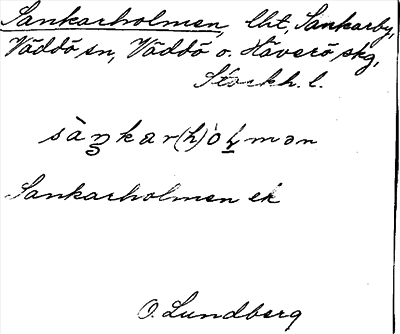 Sankarholmen, lht, Sankarby,
Väddö sn, Väddö o. Häverö skg,
Stockh. l.
sàŋkar(h)òɫmən
Sankarholmen ek
O. Lundberg